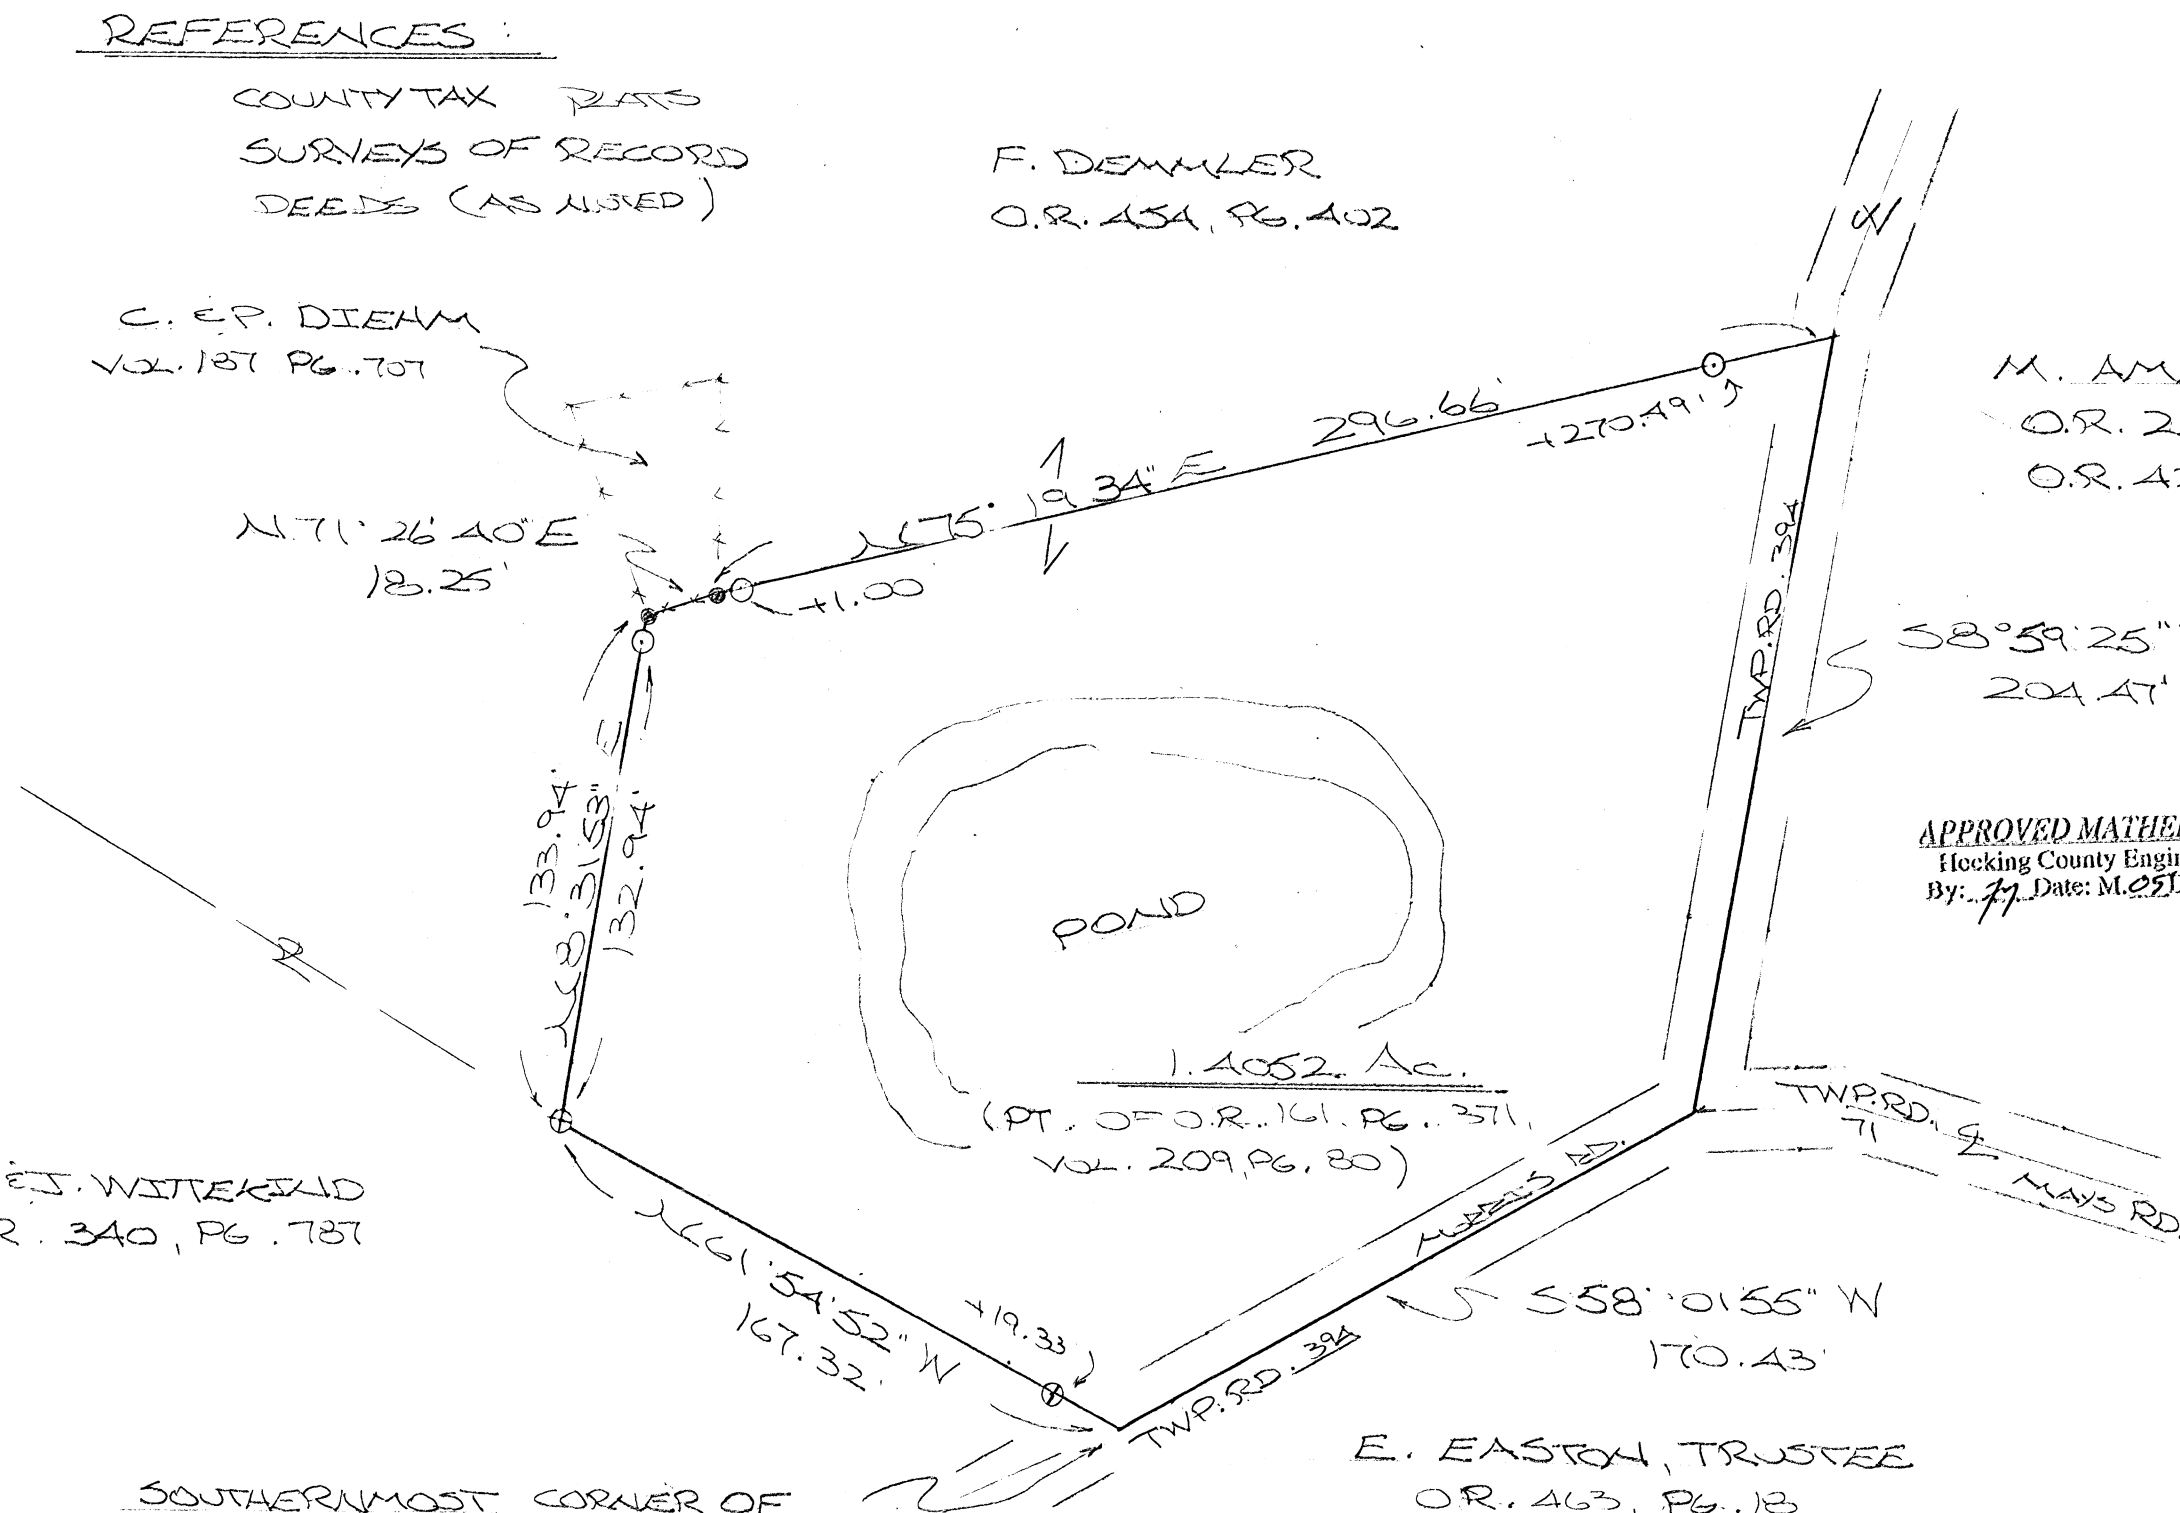 REFERENCES :
COUNTY TAX PLATS
SURVEYS OF RECORD
DEEDS (AS NOTED)
F. DEMMLER
O.R. 454, PG. 402
C. & P. DIEHM
VOL. 187 PG. 707
M. AM
O.R. 2
O.R. 4
N 71° 26' 40" E
18.25'
N 75° 19' 34" E
296.66'
+270.49'
+1.00
TWP. RD. 394
S 8° 59' 25"
204.47'
133.94'
N 8° 31' 53" E
132.94'
POND
APPROVED MATHE
Hocking County Engin
By: Date: M.05
1.4052 Ac.
(PT. OF O.R. 161, PG. 371,
VOL. 209, PG. 80)
TWP. RD.
71
MAYS RD.
& J. WITTEKIND
R. 340, PG. 787
N 61° 54' 52" W
167.32'
+19.33'
MORRIS RD.
TWP. RD. 394
S 58° 01' 55" W
170.43'
E. EASTON, TRUSTEE
O.R. 463, PG. 18
SOUTHERNMOST CORNER OF